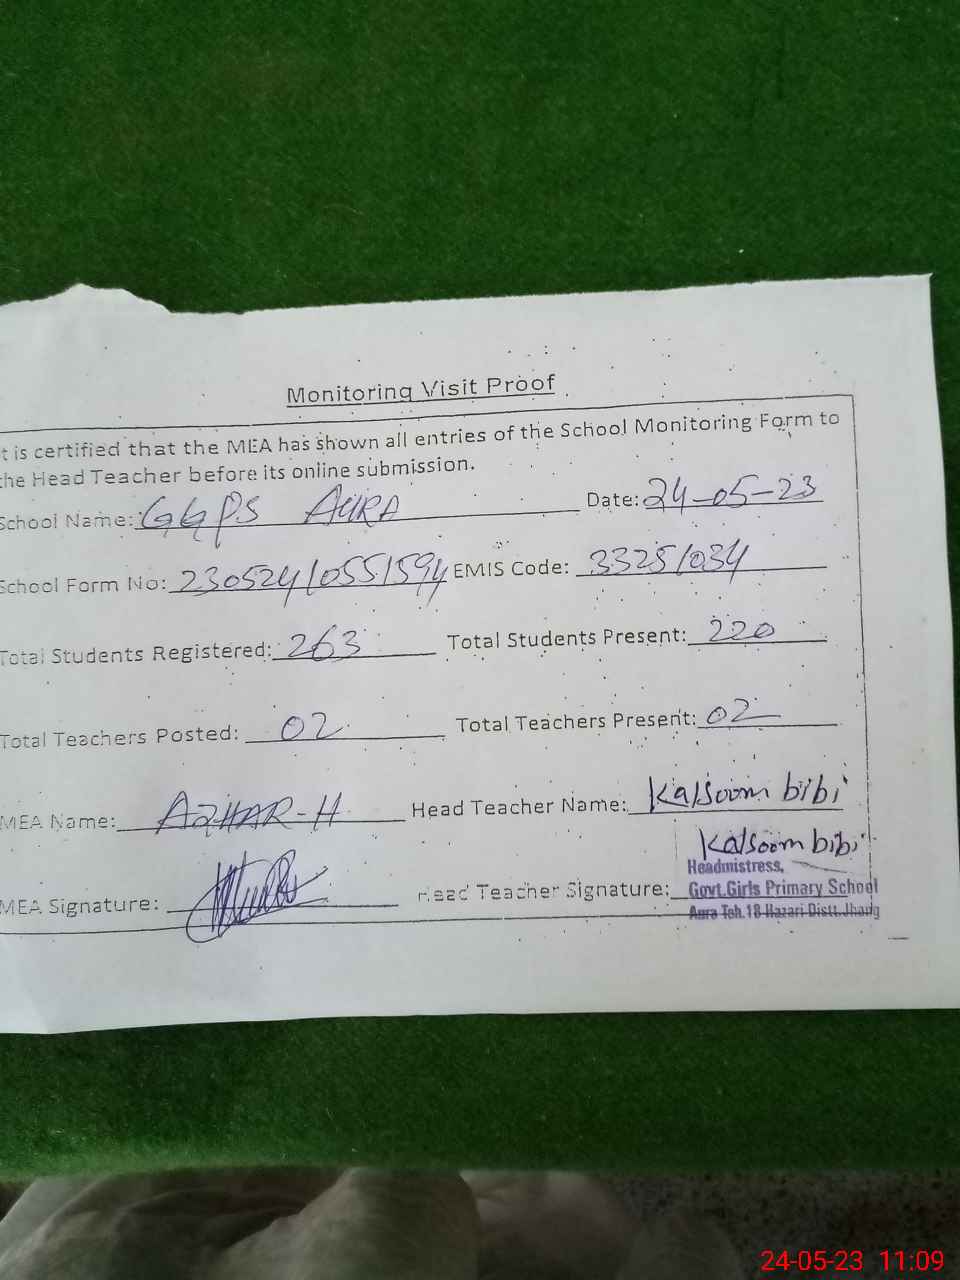 Monitoring Visit Proof
t is certified that the MEA has shown all entries of the School Monitoring Form to
the Head Teacher before its online submission.
School Name: GGPS AURA Date: 24-05-23
School Form No: 230524/0551594 EMIS Code: 33251034
Total Students Registered: 263 Total Students Present: 220
Total Teachers Posted: 02 Total Teachers Present: 02
MEA Name: AZHAR-H Head Teacher Name: Kalsoom bibi
Kalsoom bibi
Headmistress,
MEA Signature: Head Teacher Signature: Govt.Girls Primary School
Aura Teh.18-Hazari Distt.Jhang
24-05-23 11:09